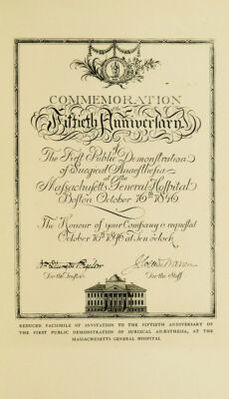 COMMEMORATION
of the
Fiftieth Anniversary
of
The First Public Demonstration
of Surgical Anaesthesia
at the
Massachusetts General Hospital
Boston October 16th 1846
The Honour of your Company is requested
October 16th 1896 at ten o'clock
For the Trustees
For the Staff
REDUCED FACSIMILE OF INVITATION TO THE FIFTIETH ANNIVERSARY OF
THE FIRST PUBLIC DEMONSTRATION OF SURGICAL ANÆSTHESIA, AT THE
MASSACHUSETTS GENERAL HOSPITAL